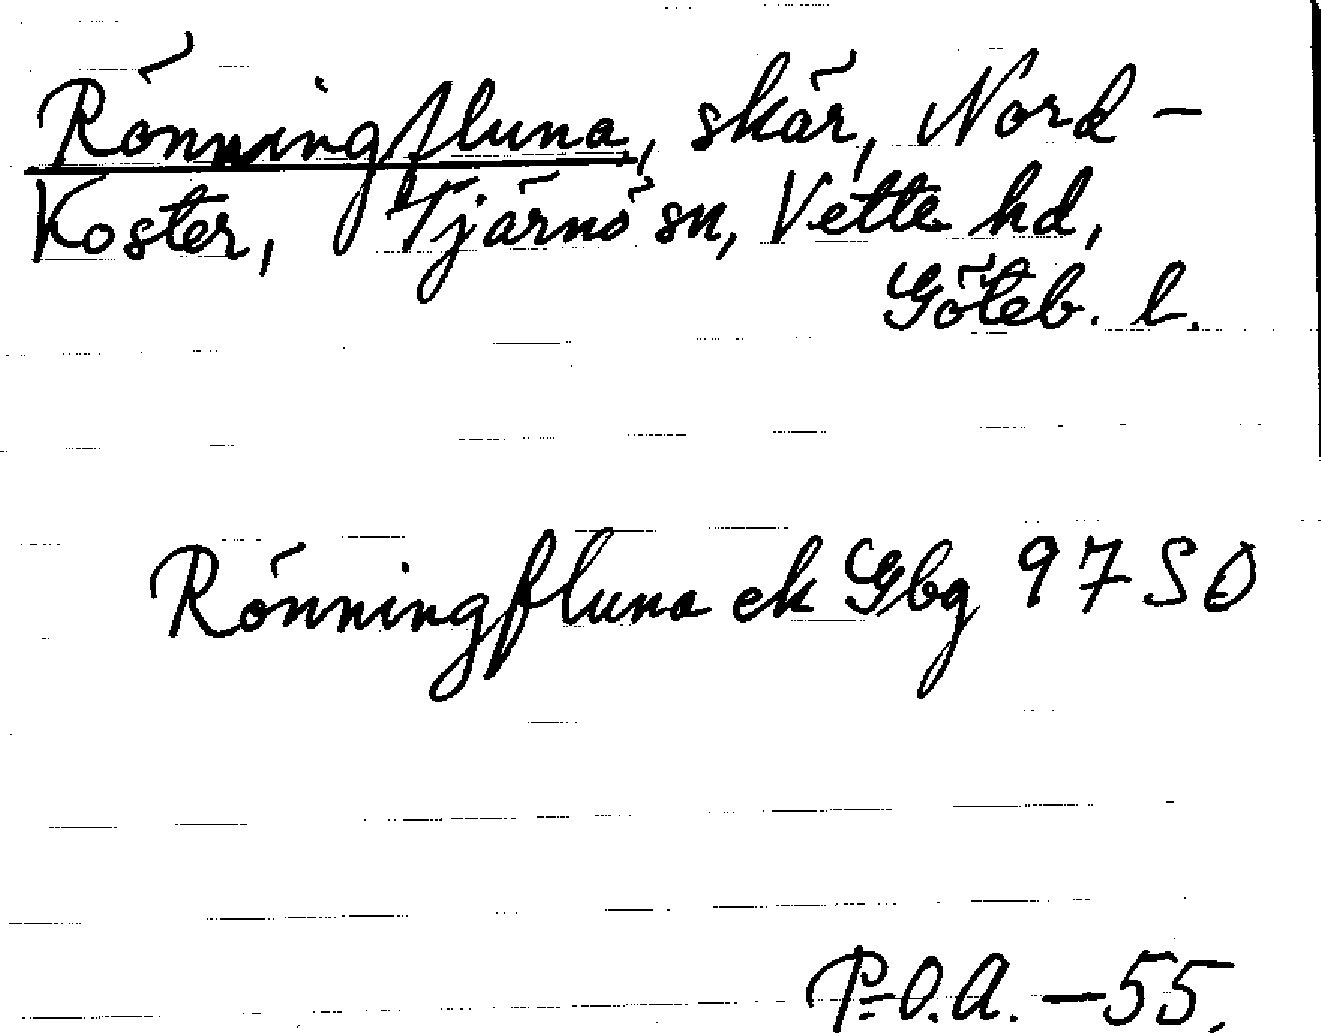 Rönningfluna, skär, Nord-
Koster, Tjärnö sn, Vette hd,
Göteb. l.
Rönningfluna ek Gbg 97 SO
P-O.A. -55.